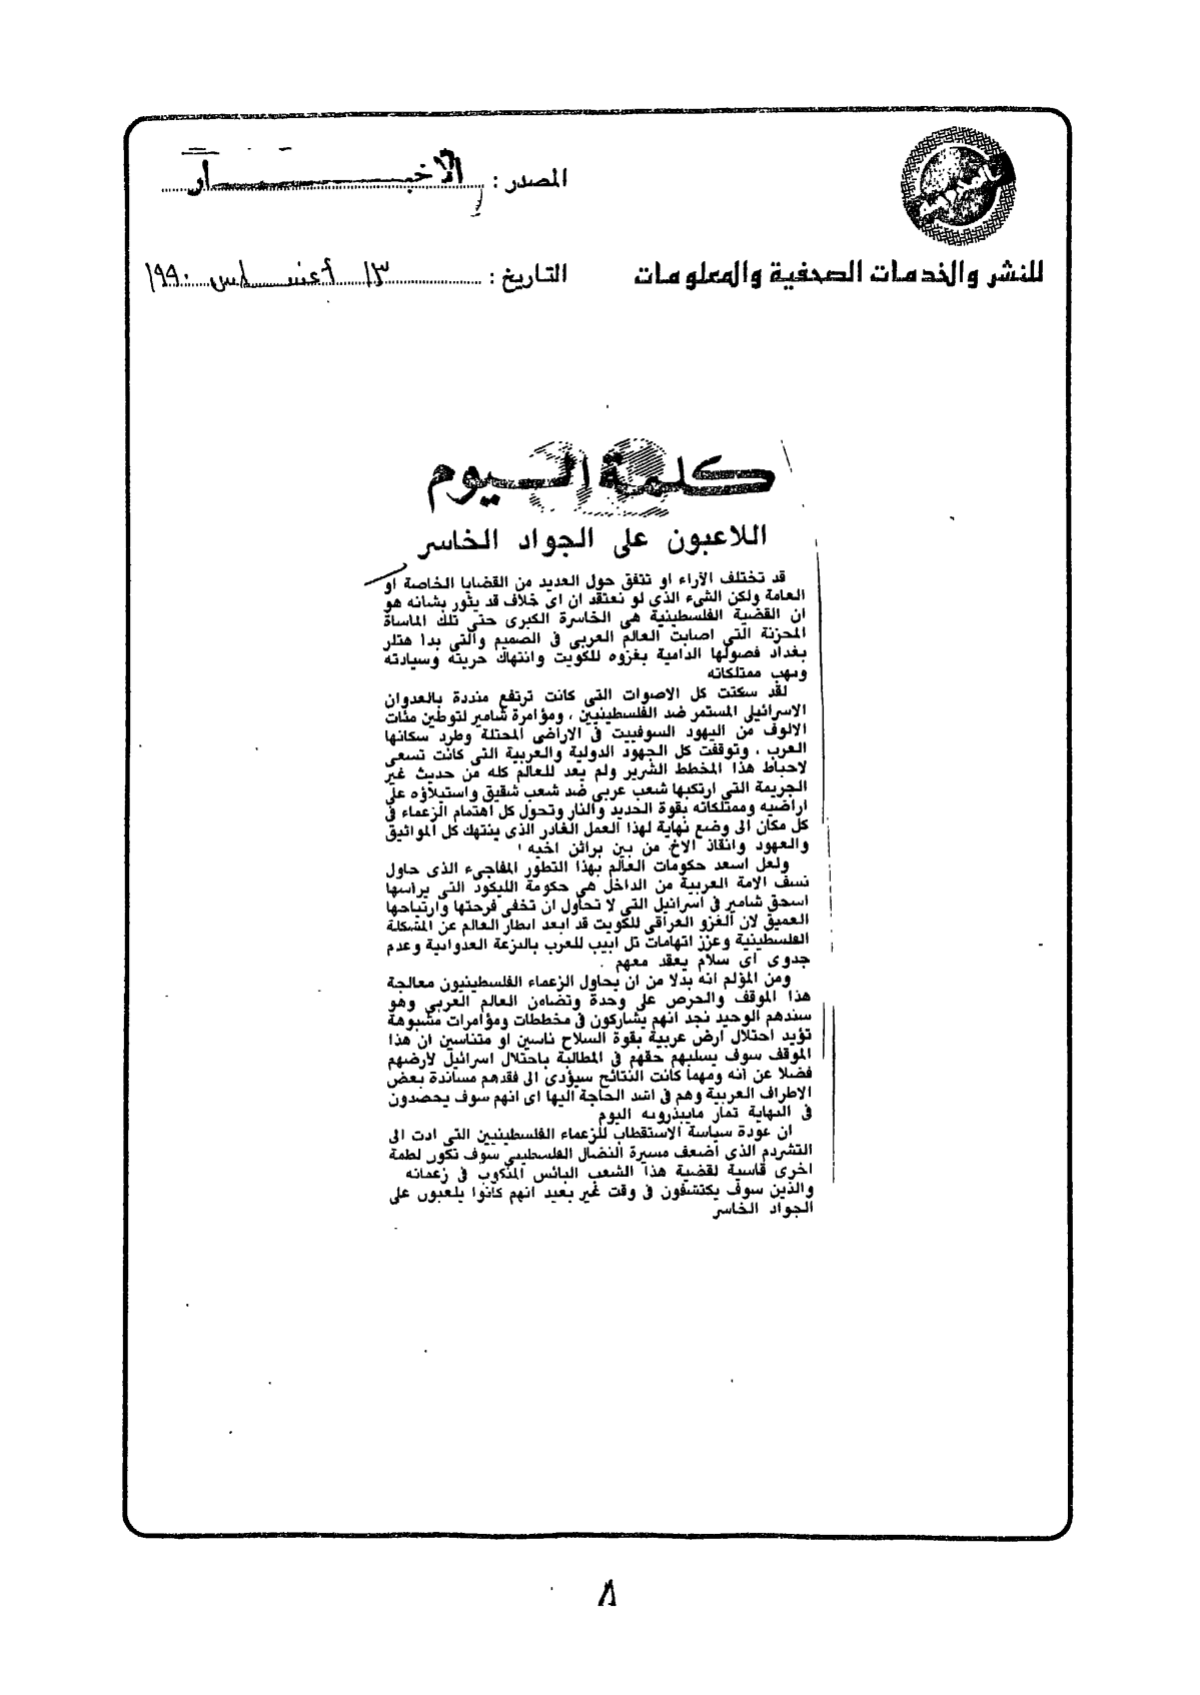 المصدر : الأخبـــــــار
للنشر والخدمات الصحفية والمعلومات
التاريخ : ١٣ أغسـطس ١٩٩٠
كلمة اليوم
اللاعبون على الجواد الخاسر
قد تختلف الآراء او تتفق حول العديد من القضايا الخاصة او
العامة ولكن الشىء الذى لو نعتقد ان اى خلاف قد يثور بشأنه هو
ان القضية الفلسطينية هى الخاسرة الكبرى حتى تلك المأساة
المحزنة التى اصابت العالم العربى فى الصميم والتى بدا هتلر
بغداد فصولها الدامية بغزوه للكويت وانتهاك حريته وسيادته
ونهب ممتلكاته
لقد سكتت كل الاصوات التى كانت ترتفع منددة بالعدوان
الاسرائيلى المستمر ضد الفلسطينيين ، ومؤامرة شامير لتوطين مئات
الالوف من اليهود السوفييت فى الاراضى المحتلة وطرد سكانها
العرب ، وتوقفت كل الجهود الدولية والعربية التى كانت تسعى
لاحباط هذا المخطط الشرير ولم يعد للعالم كله من حديث غير
الجريمة التى ارتكبها شعب عربى ضد شعب شقيق واستيلاؤه على
اراضيه وممتلكاته بقوة الحديد والنار وتحول كل اهتمام الزعماء فى
كل مكان الى وضع نهاية لهذا العمل الغادر الذى ينتهك كل المواثيق
والعهود وانقاذ الاخ من بين براثن اخيه !
ولعل اسعد حكومات العالم بهذا التطور المفاجىء الذى حاول
نسف الامة العربية من الداخل هى حكومة الليكود التى يراسها
اسحق شامير فى اسرائيل التى لا تحاول ان تخفى فرحتها وارتياحها
العميق لان الغزو العراقى للكويت قد ابعد انظار العالم عن المشكلة
الفلسطينية وعزز اتهامات تل ابيب للعرب بالنزعة العدوانية وعدم
جدوى اى سلام يعقد معهم .
ومن المؤلم انه بدلا من ان يحاول الزعماء الفلسطينيون معالجة
هذا الموقف والحرص على وحدة وتضامن العالم العربى وهو
سندهم الوحيد نجد انهم يشاركون فى مخططات ومؤامرات مشبوهة
تؤيد احتلال ارض عربية بقوة السلاح ناسين او متناسين ان هذا
الموقف سوف يسلبهم حقهم فى المطالبة باحتلال اسرائيل لارضهم
فضلا عن انه ومهما كانت النتائج سيؤدى الى فقدهم مساندة بعض
الاطراف العربية وهم فى اشد الحاجة اليها اى انهم سوف يحصدون
فى النهاية ثمار مايبذرونه اليوم
ان عودة سياسة الاستقطاب للزعماء الفلسطينيين التى ادت الى
التشرذم الذى اضعف مسيرة النضال الفلسطينى سوف تكون لطمة
اخرى قاسية لقضية هذا الشعب البائس المنكوب فى زعمائه
والذين سوف يكتشفون فى وقت غير بعيد انهم كانوا يلعبون على
الجواد الخاسر
٨